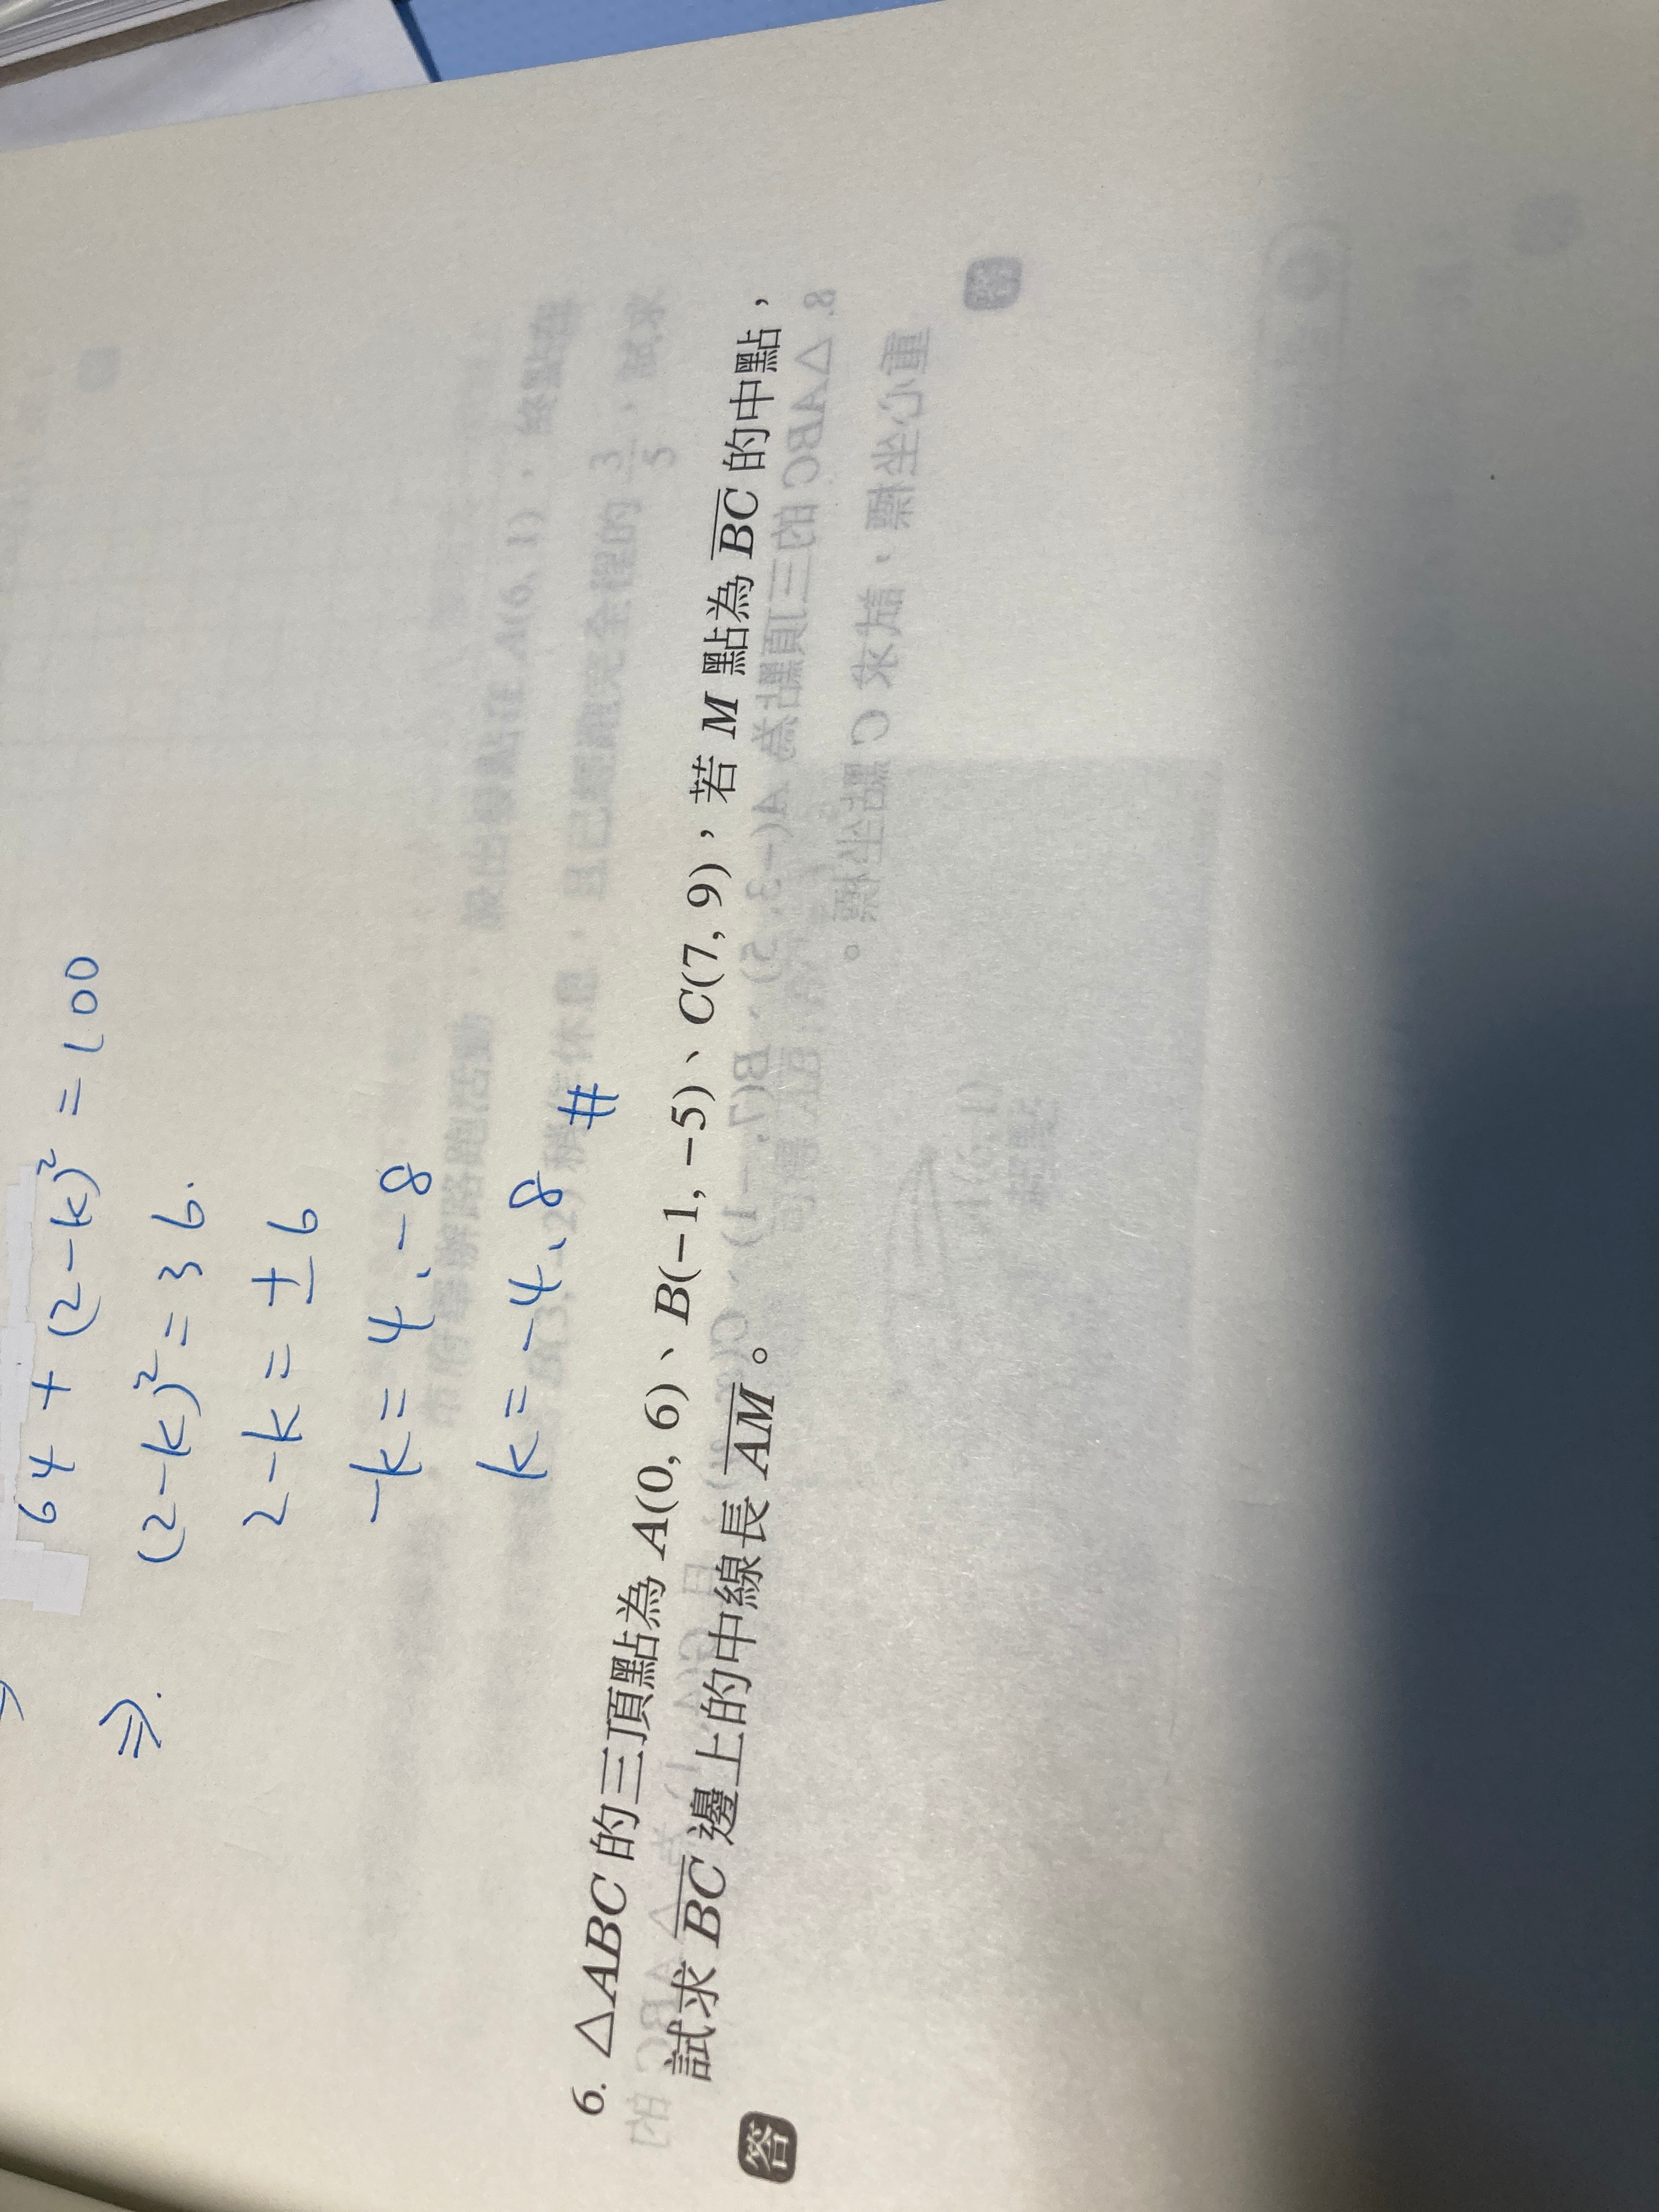 64 + (2-k)² = 100
⇒. (2-k)² = 36.
2-k = ±6
-k = 4、-8
k = -4、8 #
6. △ABC 的三頂點為 A(0, 6)、B(-1, -5)、C(7, 9),若 M 點為 BC 的中點,
試求 BC 邊上的中線長 AM。
答